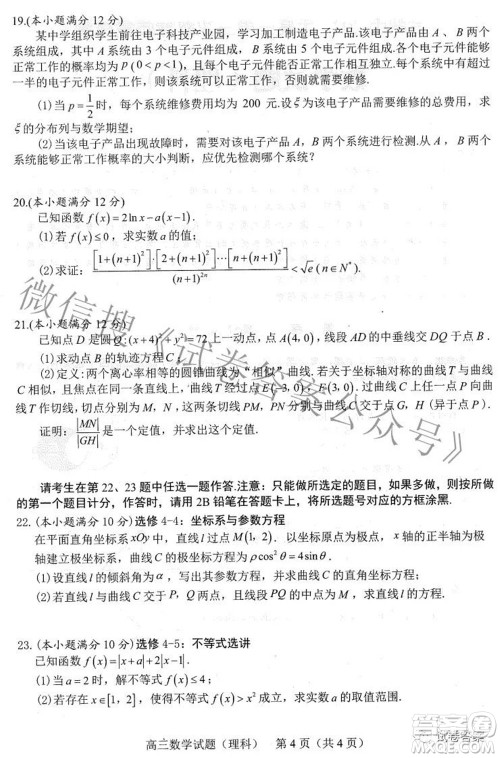 19.(本小题满分 12 分)
某中学组织学生前往电子科技产业园，学习加工制造电子产品.该电子产品由 A、B 两个
系统组成，其中 A 系统由 3 个电子元件组成，B 系统由 5 个电子元件组成.各个电子元件能
够正常工作的概率均为 p(0<p<1)，且每个电子元件能否正常工作相互独立.每个系统有超过
一半的电子元件正常工作，则该系统可以正常工作，否则就需要维修.
(1)当 p=1/2 时，每个系统维修费用均为 200 元.设ξ为该电子产品需要维修的总费用，求
ξ的分布列与数学期望；
(2)当该电子产品出现故障时，需要对该电子产品 A，B 两个系统进行检测.从 A，B 两个
系统能够正常工作概率的大小判断，应优先检测哪个系统？
20.(本小题满分 12 分)
已知函数 f(x)=2lnx-a(x-1).
(1)若 f(x)≤0，求实数 a 的值；
(2)求证：[1+(n+1)²]·[2+(n+1)²]···[n+(n+1)²]/(n+1)²ⁿ<√e(n∈N*).
21.(本小题满分 12 分)
已知点 D 是圆 Q:(x+4)²+y²=72 上一动点，点 A(4,0)，线段 AD 的中垂线交 DQ 于点 B.
(1)求动点 B 的轨迹方程 C；
(2)定义：两个离心率相等的圆锥曲线为“相似”曲线.若关于坐标轴对称的曲线 T 与曲线
C 相似，且焦点在同一条直线上，曲线 T 经过点 E(-3,0)，F(3,0).过曲线 C 上任一点 P 向曲线
T 作切线，切点分别为 M，N，这两条切线 PM，PN 分别与曲线 C 交于点 G，H(异于点 P).
证明：|MN|/|GH|是定值.
请考生在第 22、23 题中任选一题作答.注意：只能做所选定的题目，如果多做，则按所做
的第一个题目计分，作答时，请用 2B 铅笔在答题卡上，将所选题目对应的方框涂黑.
22.(本小题满分 10 分)选修 4-4：坐标系与参数方程
在平面直角坐标系 xOy 中，直线 l 过定点 M(1,2).以坐标原点为极点，x 轴的正半轴为极
轴建立极坐标系，曲线 C 的极坐标方程为 ρcos²θ=4sinθ.
(1)设直线 l 的倾斜角为α，写出其参数方程，并求曲线 C 的直角坐标方程；
(2)若直线 l 与曲线 C 交于 P，Q 两点，且线段 PQ 的中点为 M，求直线 l 的方程.
23.(本小题满分 10 分)选修 4-5：不等式选讲
已知函数 f(x)=|x+a|+2|x-1|.
(1)当 a=2 时，解不等式 f(x)≤4；
(2)若存在 x∈[1,2]，使得不等式 f(x)>x² 成立，求实数 a 的取值范围.
高三数学试题（理科） 第 4 页（共 4 页）
微信搜《试卷答案公众号》
试卷答案